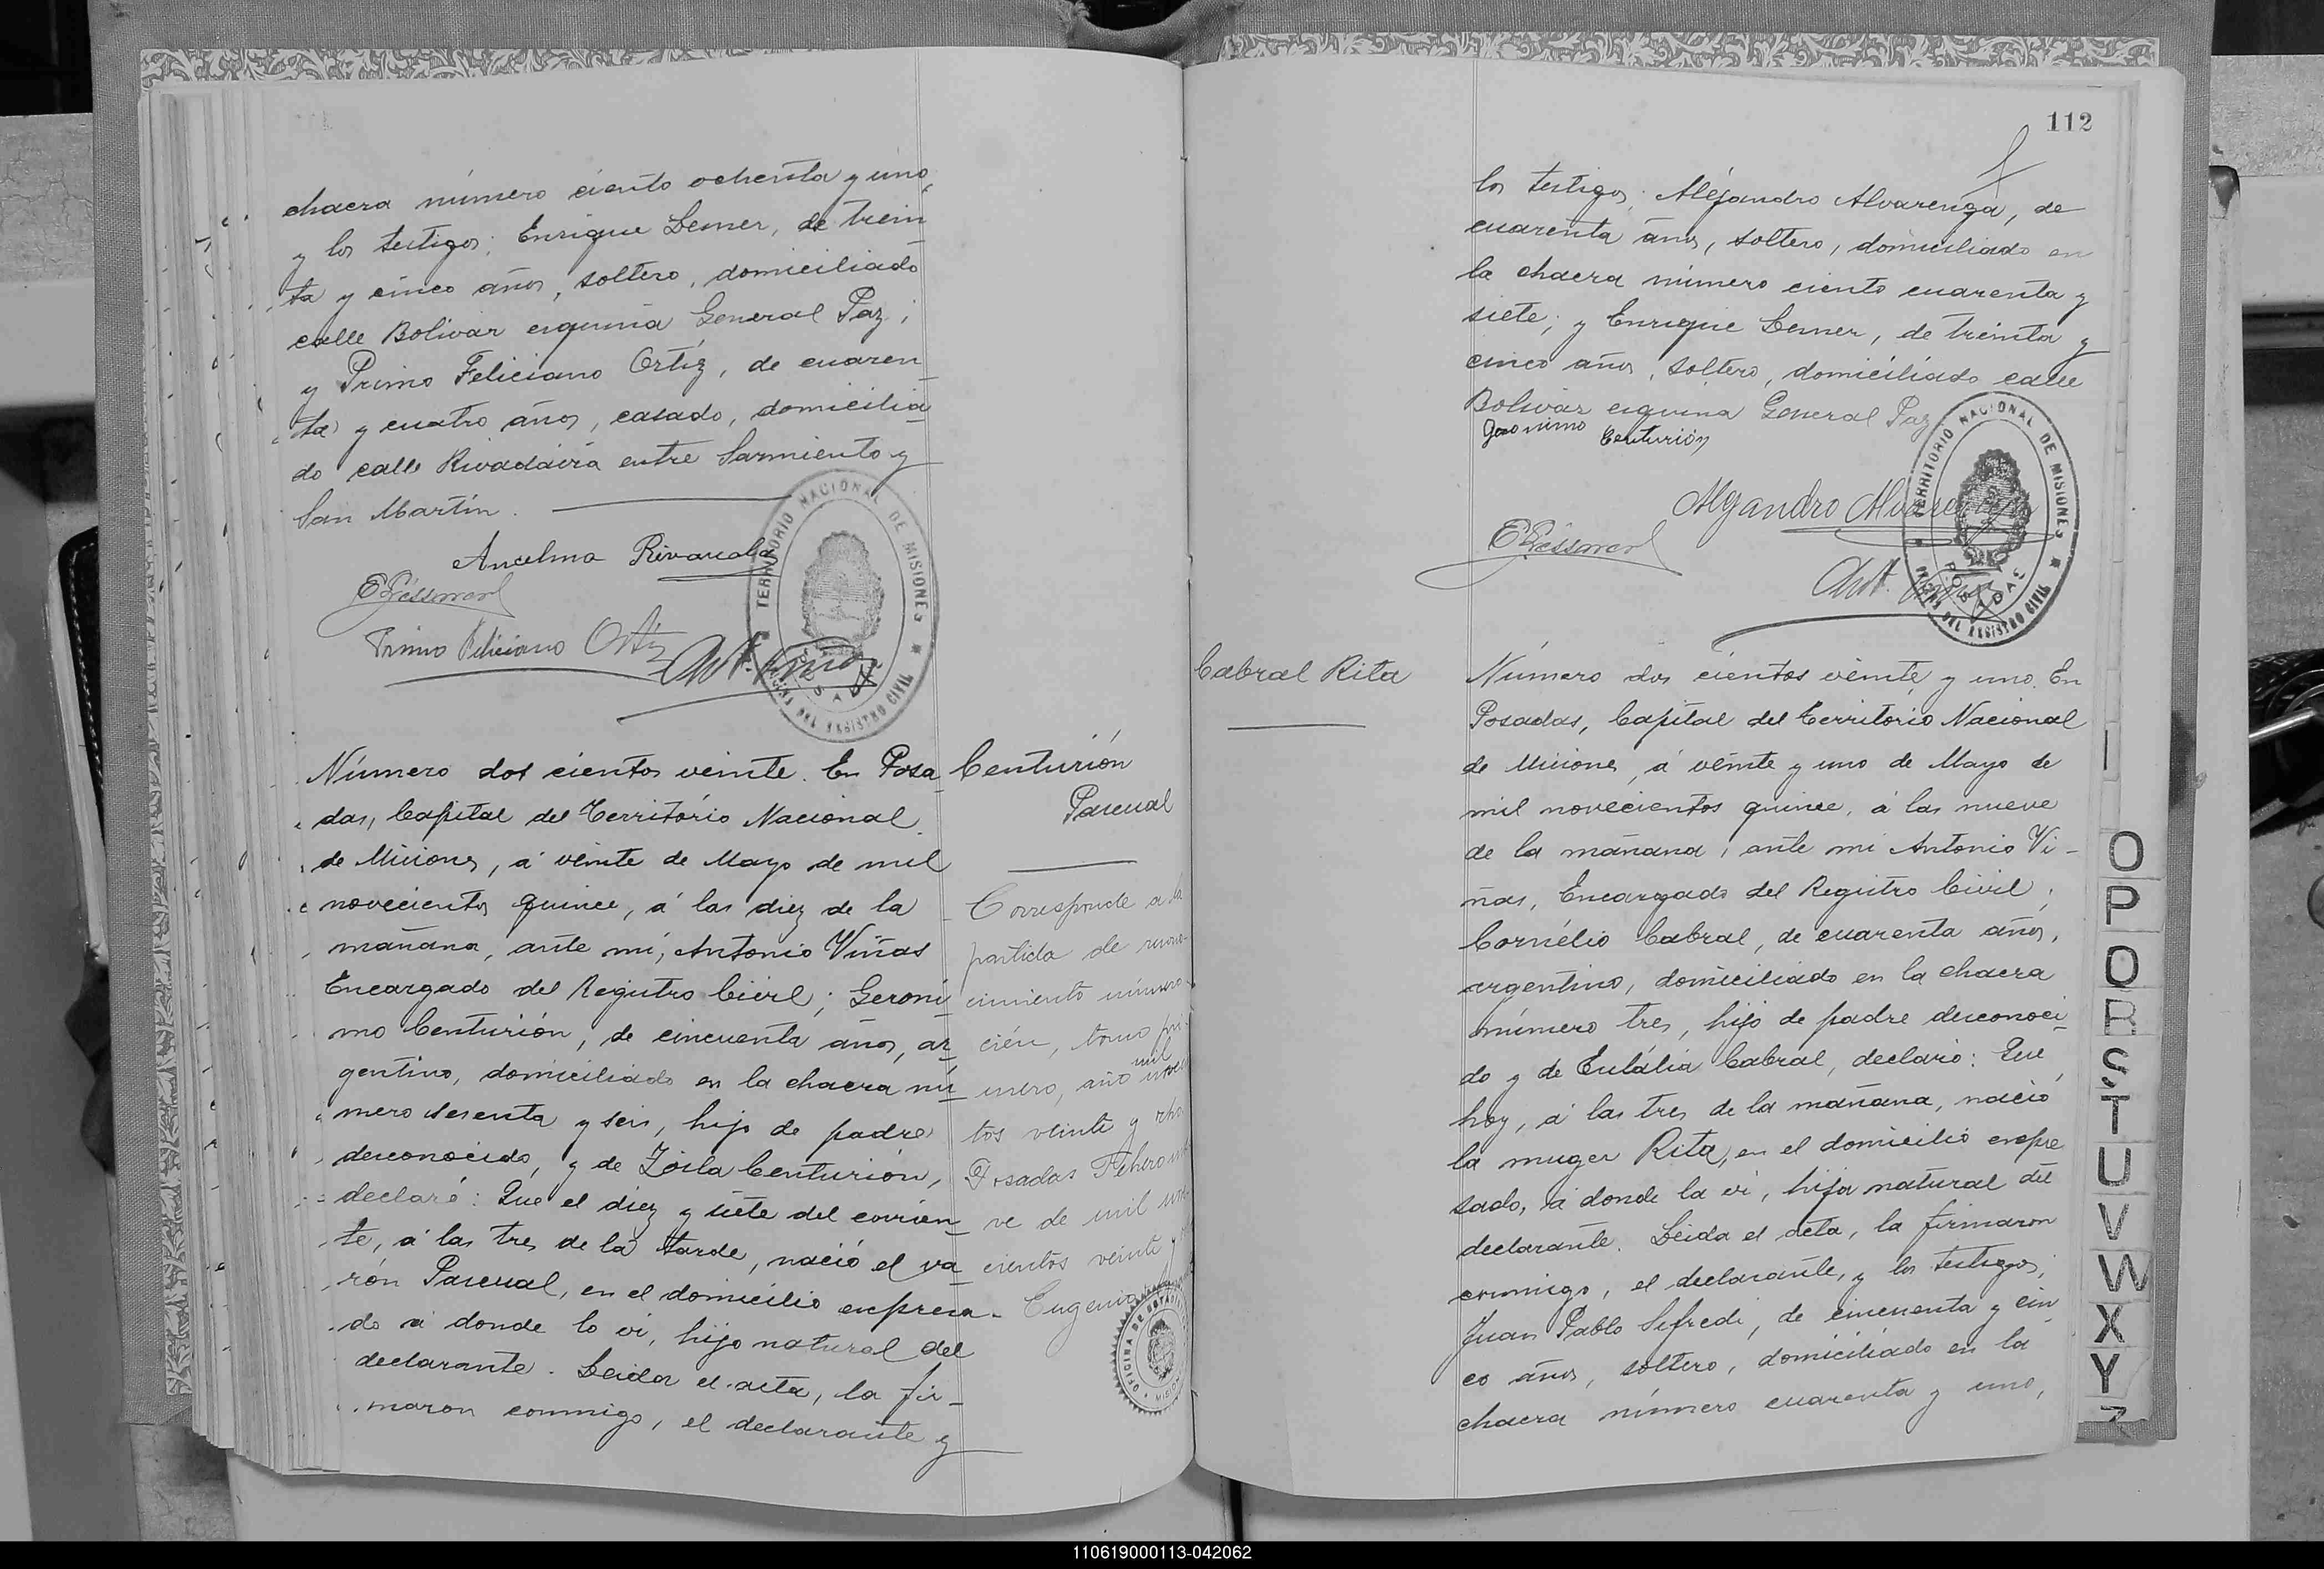 chacra número ciento ochenta y uno,
y los testigos: Enrique Lesner, de trein
ta y cinco años, soltero, domiciliado
calle Bolivar esquina General Paz;
y Primo Feliciano Ortíz, de cuaren
ta y cuatro años, casado, domicilia
do calle Rivadavia entre Sarmiento y
San Martín.
Ancelmo Rivarola
Primo Feliciano Ortiz
Ant. Viñas
TERRITORIO NACIONAL DE MISIONES
DEL REGISTRO CIVIL
Número dos cientos veinte. En Posa
das, Capital del Territorio Nacional
de Misiones, á veinte de Mayo de mil
novecientos quince, á las diez de la
mañana, ante mí, Antonio Viñas
Encargado del Registro Civil; Geroni
mo Centurión, de cincuenta años, ar
gentino, domiciliado en la chacra nú
mero sesenta y seis, hijo de padre
desconocido, y de Zoila Centurión,
declaró: Que el diez y siete del corrien
te, á las tres de la tarde, nació el va
rón Pascual, en el domicilio expresa-
do á donde lo vi, hijo natural del
declarante. Leida el acta, la fir-
maron conmigo, el declarante y
Centurión
Pascual
Corresponde a la
partida de recono-
cimiento número
cién, tomo pri
mil
mero, año nove
tos veinte y ocho
Posadas Febrero
ve de mil no
cientos veinte y
Eugenio
OFICINA DE
112
los testigos: Aléjandro Alvarenga, de
cuarenta años, soltero, domiciliado en
la chacra número ciento cuarenta y
siete; y Enrique Lesner, de treinta y
cinco años, soltero, domiciliado calle
Bolivar esquina General Paz
Geronimo Centurión
Alejandro Alvarenga
Ant. Viñas
TERRITORIO NACIONAL DE MISIONES
POSADAS
DEL REGISTRO CIVIL
Cabral Rita
Número dos cientos veinte y uno. En
Posadas, Capital del Territorio Nacional
de Misiones, á veinte y uno de Mayo de
mil novecientos quince, á las nueve
de la mañana, ante mi Antonio Vi-
ñas, Encargado del Registro Civil;
Cornélio Cabral, de cuarenta años,
argentino, domiciliado en la chacra
número tres, hijo de padre desconoci
do y de Eulália Cabral, declaró: Que
hoy, á las tres de la mañana, nació
la muger Rita, en el domicilio expre
sado, á donde la vi, hija natural del
declarante. Leida el acta, la firmaron
conmigo, el declarante, y los testigos;
Juan Pablo Sefredi, de cincuenta y cin
co años, soltero, domiciliado en la
chacra número cuarenta y uno,
O
P
Q
R
S
T
U
V
W
X
Y
Z
110619000113-042062